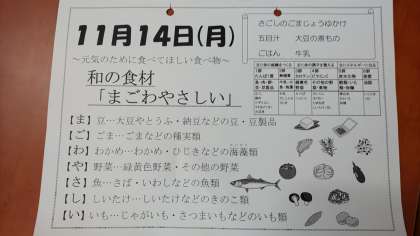 11月14日(月)
～元気のために食べてほしい食べ物～
和の食材
「まごわやさしい」
さごしのごまじょうゆかけ
五目汁　大豆の煮もの
ごはん　牛乳
【ま】豆…大豆やとうふ・納豆などの豆・豆製品
【ご】ごま…ごまなどの種実類
【わ】わかめ…わかめ・ひじきなどの海藻類
【や】野菜…緑黄色野菜・その他の野菜
【さ】魚…さば・いわしなどの魚類
【し】しいたけ…しいたけなどのきのこ類
【い】いも…じゃがいも・さつまいもなどのいも類